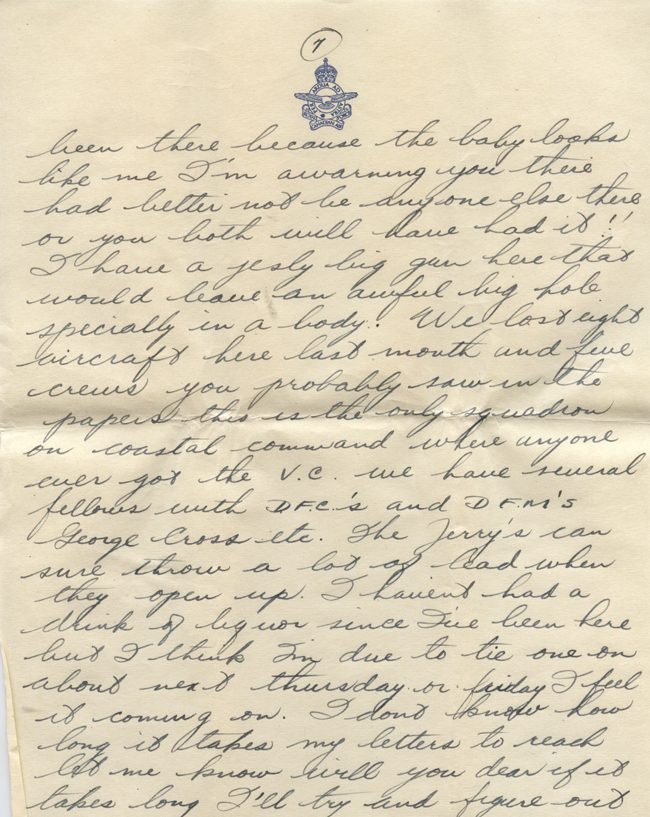 7
PER ARDUA AD ASTRA
ROYAL CANADIAN AIR FORCE
been there because the baby looks
like me I'm awarning you there
had better not be anyone else there
or you both will have had it!!
I have a jesly big gun here that
would leave an awful big hole
specially in a body. We lost eight
aircraft here last month and five
crews you probably saw in the
papers this is the only squadron
on coastal command where anyone
ever got the V.C. we have several
fellows with DFC's and DFM's
George Cross etc. The Jerry's can
sure throw a lot of lead when
they open up. I havent had a
drink of liquor since I've been here
but I think I'm due to tie one on
about next thursday or friday I feel
it coming on. I dont know how
long it takes my letters to reach
let me know will you dear if it
takes long I'll try and figure out